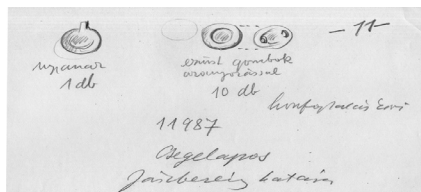 - 11 -
ezüst gombok
aranyozással
1 db
10 db
honfoglalás kori
11987
Csegelapos
Jászberény határa